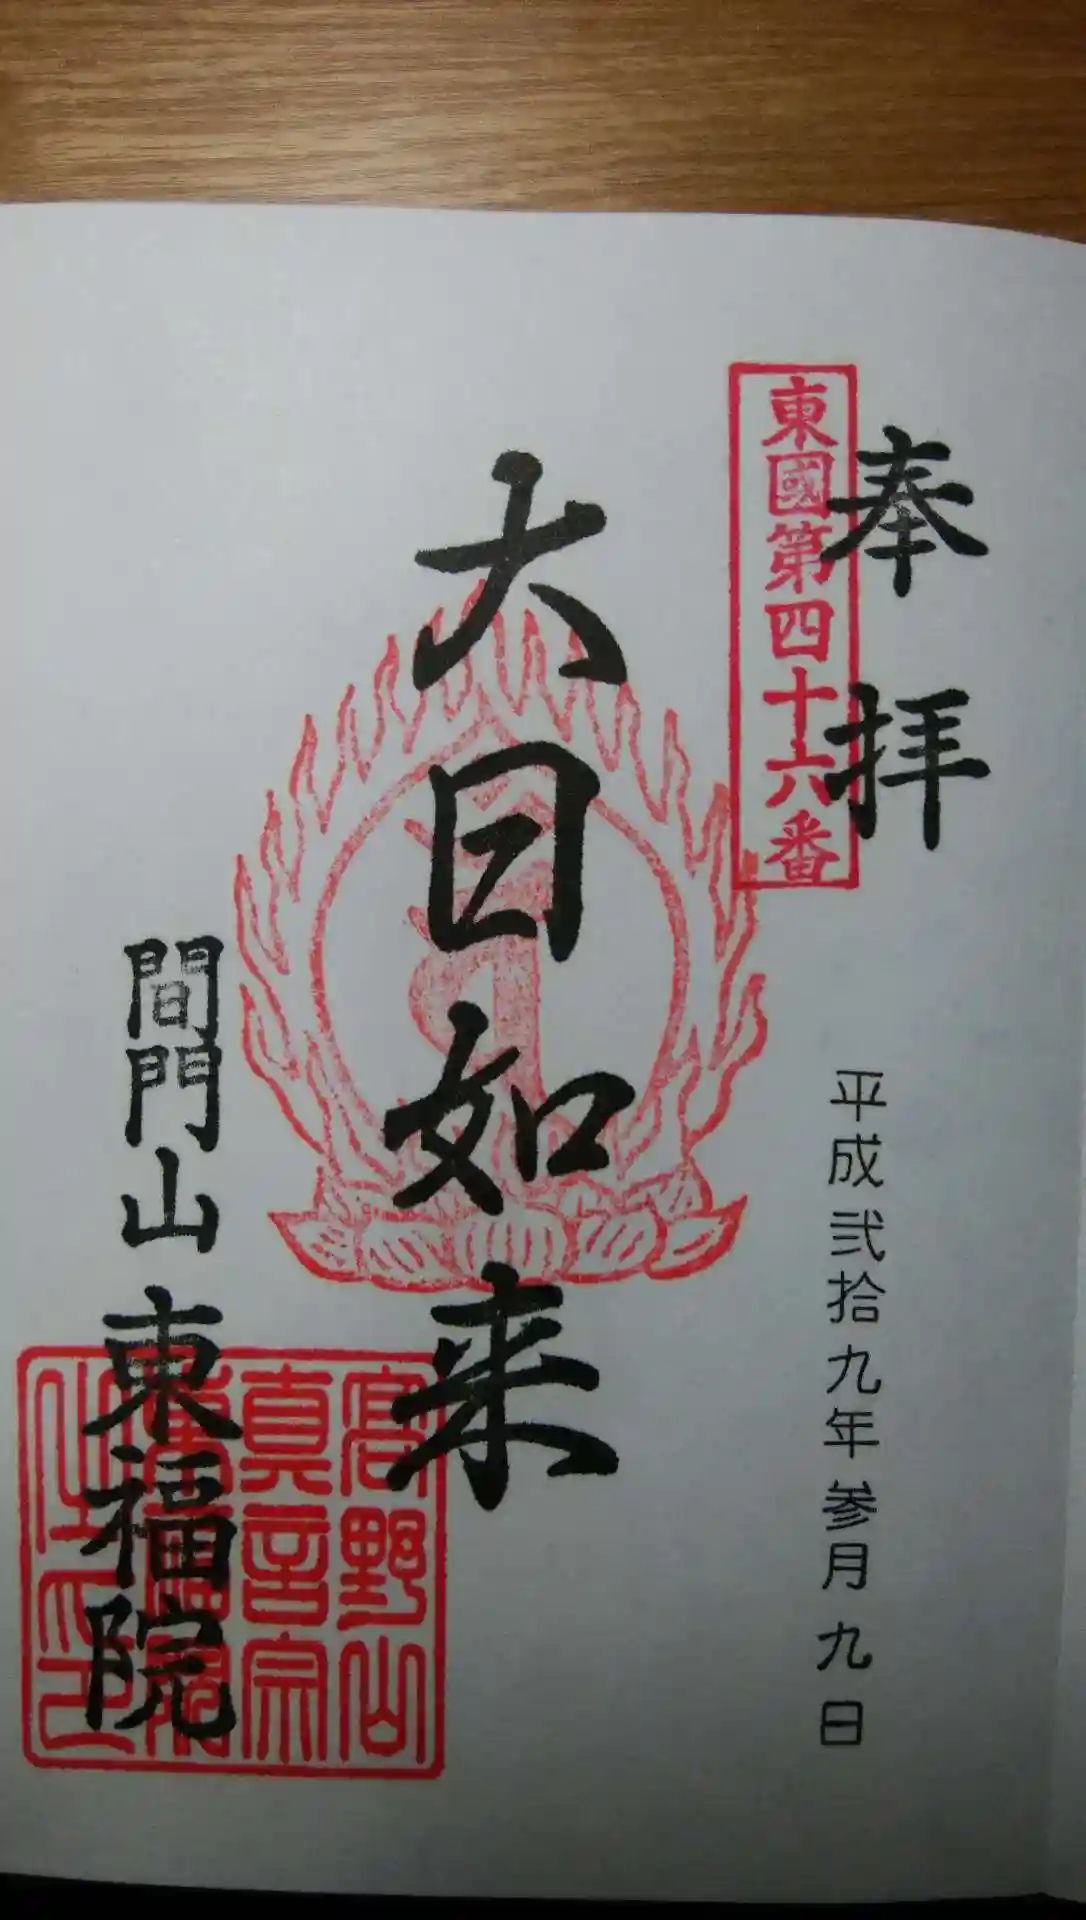 奉拝
東國第四十六番
平成弐拾九年参月九日
大日如来
間門山
東福院
高野山
真言宗
東福院
之印